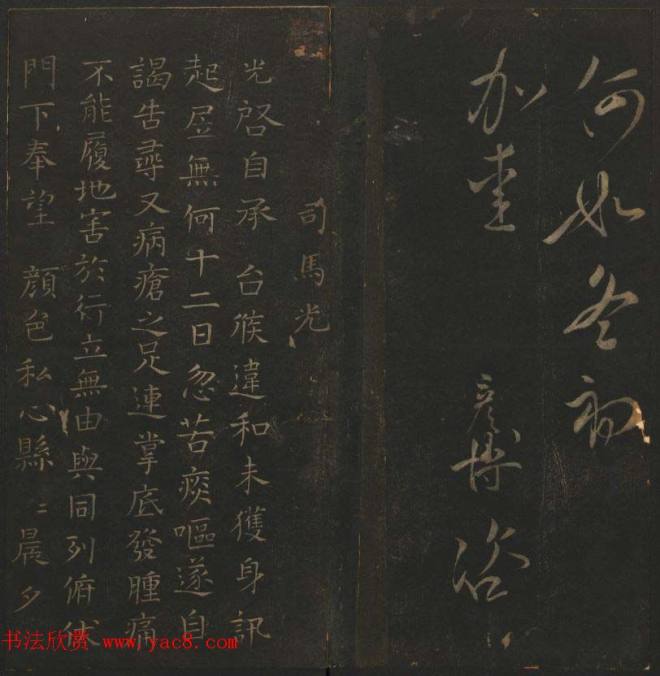 何如冬初
加
彥博 咨
司馬光
光啓自承 台候違和未獲身訊
起居無何十二日忽苦痰嘔遂自
謁告尋又病瘡之足連掌底發腫痛
不能履地害於行立無由與同列俯伏
門下奉望 顔色私心縣〻晨夕
书法欣赏 www.yac8.com